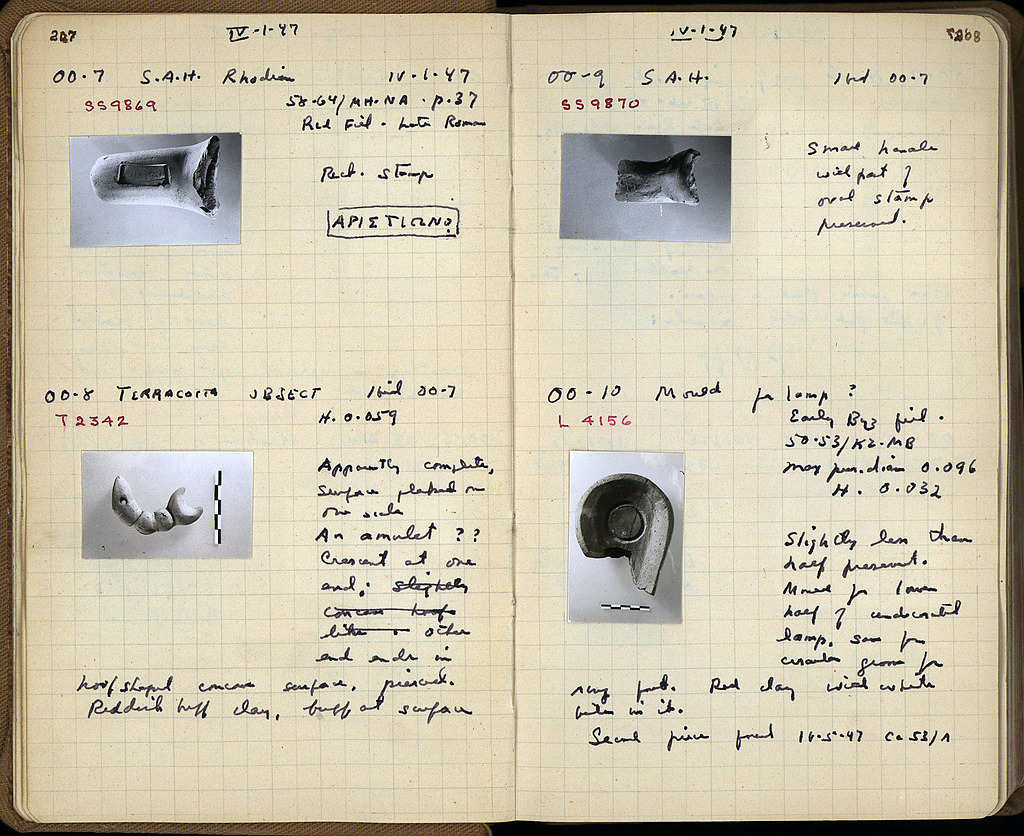 227
IV-1-47
OO-7 S.A.H. Rhodian IV-1-47
SS9869
58-64/MH-NA - p.37
Red Fill - Late Roman
Rect. stamp
ΑΡΙΣΤΙΩΝΟ
OO-8 TERRACOTTA OBJECT Ibid OO-7
T2342
H. 0.059
Apparently complete,
surface flaked on
one side
An amulet ??
Crescent at one
end; slightly
concave hoof
like other
end ends in
hoof shaped concave surface, pierced.
Reddish buff clay, buff at surface
IV-1-47
OO-9 S.A.H. Ibid OO-7
SS9870
Small handle
with part of
oval stamp
preserved.
OO-10 Mould for lamp?
L 4156
Early Byz fill.
50-53/KZ-MB
max pres. diam 0.096
H. 0.032
Slightly less than
half preserved.
Mould for lower
half of undecorated
lamp, save for
circular groove for
ring foot. Red clay with white
bits in it.
Second piece found 16-5-47 Ca 53/Λ